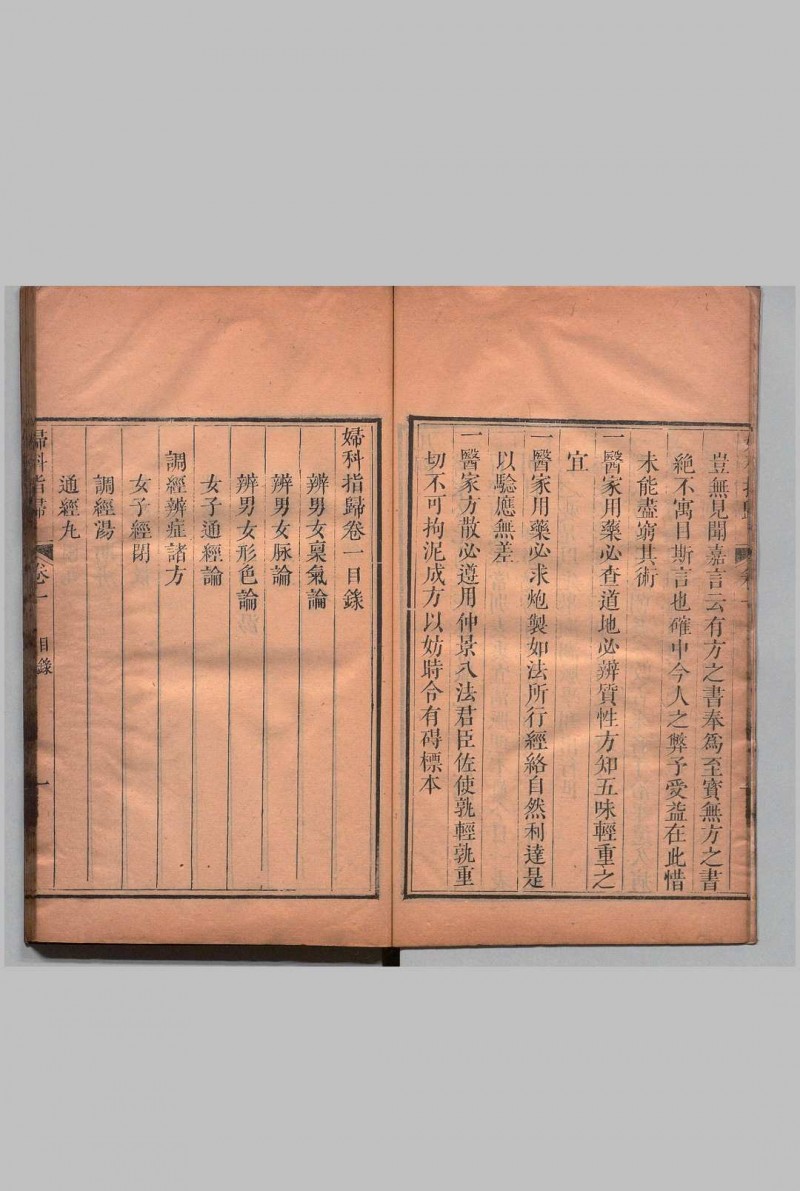 豈無見聞嘉言云有方之書奉爲至寶無方之書
絶不寓目斯言也確中今人之弊予愛益在此惜
未能盡窮其術
一醫家用藥必查道地必辨質性方知五味輕重之
宜
一醫家用藥必求炮製如法所行經絡自然利達是
以驗應無差
一醫家方散必遵用仲景八法君臣佐使孰輕孰重
切不可拘泥成方以妨時令有碍標本
婦科指歸卷一目錄
辨男女稟氣論
辨男女脉論
辨男女形色論
女子通經論
調經辨症諸方
女子經閉
調經湯
通經丸
婦科指歸
卷一
目錄
一